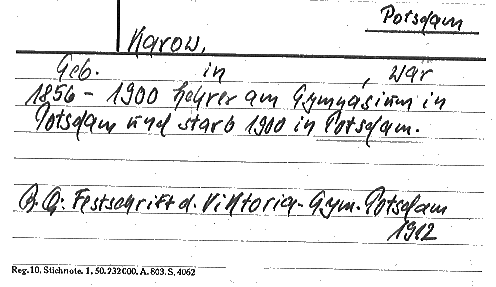 Potsdam
Karow,
Geb. in , war
1856 - 1900 Lehrer am Gymnasium in
Potsdam und starb 1900 in Potsdam.
B. Q: Festschrift d. Viktoria-Gym. Potsdam
1912
Reg. 10. Stichnote. 1. 50. 232000. A. 803. S. 4062